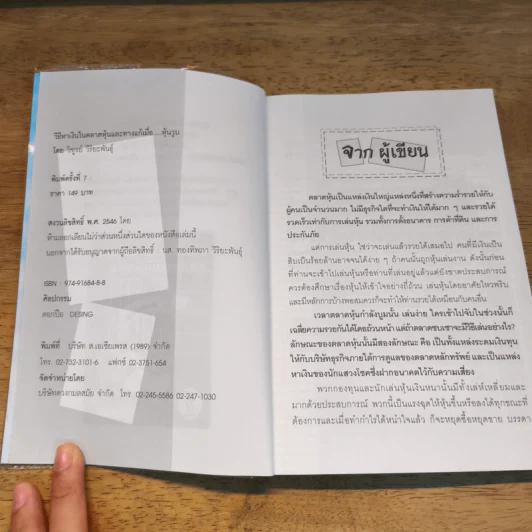 วิธีหาเงินในตลาดหุ้นและทางแก้เมื่อ...หุ้นวูบ
โดย วิฑูรย์ วิริยะพันธุ์
พิมพ์ครั้งที่ 7
ราคา 149 บาท
สงวนลิขสิทธิ์ พ.ศ. 2546 โดย
ห้ามลอกเลียนไม่ว่าส่วนหนึ่งส่วนใดของหนังสือเล่มนี้
นอกจากได้รับอนุญาตจากผู้ถือลิขสิทธิ์ : นส. ทองทิพภา วิริยะพันธุ์
ISBN : 974-91684-8-8
ศิลปกรรม
ดอกเปีย DESING
พิมพ์ที่ บริษัท ส.เอเซียเพรส (1989) จำกัด
โทร. 02-732-3101-6 แฟกซ์ 02-3751-654
จัดจำหน่ายโดย
บริษัทดวงกมลสมัย จำกัด โทร 02-245-5586 02-247-1030
จาก ผู้เขียน
ตลาดหุ้นเป็นแหล่งเงินใหญ่แหล่งหนึ่งที่สร้างความร่ำรวยให้กับ
ผู้คนเป็นจำนวนมาก ไม่มีธุรกิจใดที่จะทำเงินให้ได้มาก ๆ และรวยได้
รวดเร็วเท่ากับการเล่นหุ้น รวมทั้งการตั้งธนาคาร การค้าที่ดิน และการ
ประกันภัย
แต่การเล่นหุ้น ใช่ว่าจะเล่นแล้วรวยได้เสมอไป คนที่มีเงินเป็น
สิบเป็นร้อยล้านอาจจนได้ง่าย ๆ ถ้าคนนั้นถูกหุ้นเล่นงาน ดังนั้นก่อน
ที่ท่านจะเข้าไปเล่นหุ้นหรือท่านที่เล่นอยู่แล้วแต่ยังขาดประสบการณ์
ควรต้องศึกษาเรื่องหุ้นให้เข้าใจอย่างถี่ถ้วน เล่นหุ้นโดยอาศัยไหวพริบ
และมีหลักการบ้างพอสมควรก็จะทำให้ท่านรวยได้เหมือนกับคนอื่น
เวลาตลาดหุ้นกำลังบูมนั้น เล่นง่าย ใครเข้าไปจับในช่วงนั้นก็
เฉลี่ยความรวยกันได้โดยถ้วนหน้า แต่ถ้าตลาดซบเซาจะมีวิธีเล่นอย่างไร?
ลักษณะของตลาดหุ้นนั้นมีสองลักษณะ คือ เป็นทั้งแหล่งระดมเงินทุน
ให้กับบริษัทธุรกิจภายใต้การดูแลของตลาดหลักทรัพย์ และเป็นแหล่ง
หาเงินของนักแสวงโชคซึ่งฝากอนาคตไว้กับความเสี่ยง
พวกกองทุนและนักเล่นหุ้นเงินหนานั้นมีทั้งเล่ห์เหลี่ยมและ
มากด้วยประสบการณ์ พวกนี้เป็นแรงฉุดให้หุ้นขึ้นหรือลงได้ทุกขณะที่
ต้องการและเมื่อทำกำไรได้หนำใจแล้ว ก็จะหยุดซื้อหยุดขาย บรรดา